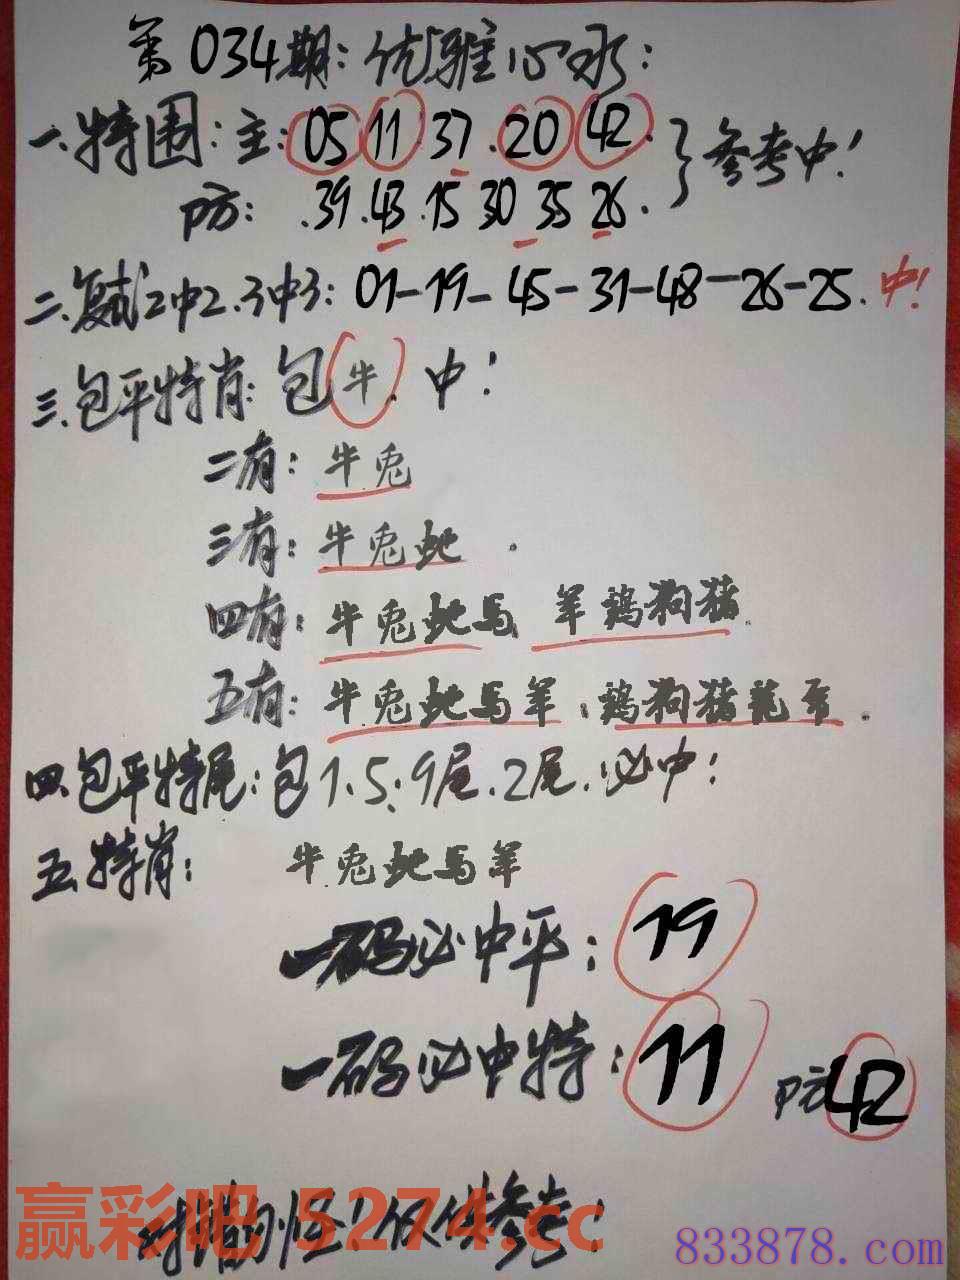 第034期:优雅心水:
一.特围:主:05 11 37.20 42.}参考中!
防: .39.43.15 30 35 26.
二.复试2中2.3中3:01-19-45-31-48-26-25.中!
三.包平特肖:包牛.中!
二有:牛兎
三有:牛兎蛇.
四有:牛兎蛇马、羊鷄狗猪.
五有:牛兎蛇马羊、鷄狗猪龍.
四.包平特尾:包1、5:9尾.2尾.必中!
五.特肖:牛兎蛇马羊
一码必中平:19
一码必中特:11 防42
对错别怪!仅供参考!
赢彩吧 5274.cc
833878.com